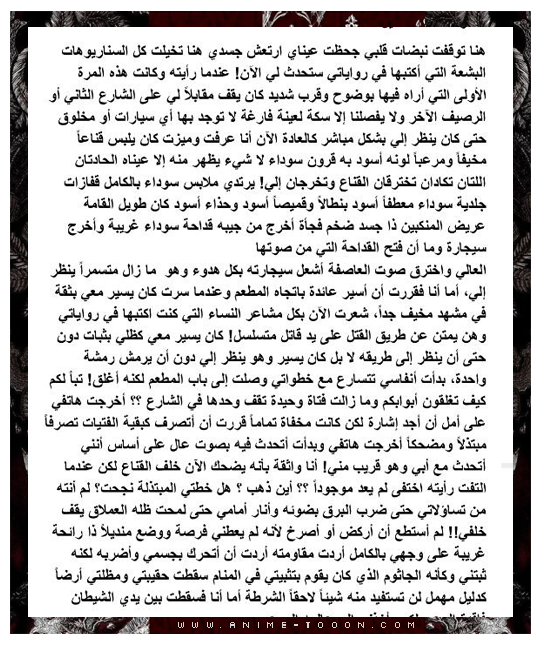 هنا توقفت نبضات قلبي جحظت عيناي ارتعش جسدي هنا تخيلت كل السناريوهات
البشعة التي أكتبها في رواياتي ستحدث لي الآن! عندما رأيته وكانت هذه المرة
الأولى التي أراه فيها بوضوح وقرب شديد كان يقف مقابلاً لي على الشارع الثاني أو
الرصيف الآخر ولا يفصلنا إلا سكة لعينة فارغة لا توجد بها أي سيارات أو مخلوق
حتى كان ينظر إلي بشكل مباشر كالعادة الآن أنا عرفت وميزت كان يلبس قناعاً
مخيفاً ومرعباً لونه أسود به قرون سوداء لا شيء يظهر منه إلا عيناه الحادتان
اللتان تكادان تخترقان القناع وتخرجان إلي! يرتدي ملابس سوداء بالكامل قفازات
جلدية سوداء معطفاً أسود بنطالاً وقميصاً أسود وحذاء أسود كان طويل القامة
عريض المنكبين ذا جسد ضخم فجأة أخرج من جيبه قداحة سوداء غريبة وأخرج
سيجارة وما أن فتح القداحة التي من صوتها
العالي واخترق صوت العاصفة أشعل سيجارته بكل هدوء وهو ما زال متسمراً ينظر
إلي، أما أنا فقررت أن أسير عائدة باتجاه المطعم وعندما سرت كان يسير معي بثقة
في مشهد مخيف جداً، شعرت الآن بكل مشاعر النساء التي كنت اكتبها في رواياتي
وهن يمتن عن طريق القتل على يد قاتل متسلسل! كان يسير معي كظلي بثبات دون
حتى أن ينظر إلى طريقه لا بل كان يسير وهو ينظر إلي دون أن يرمش رمشة
واحدة، بدأت أنفاسي تتسارع مع خطواتي وصلت إلى باب المطعم لكنه أغلق! تبأ لكم
كيف تغلقون أبوابكم وما زالت فتاة وحيدة تقف وحدها في الشارع ؟؟ أخرجت هاتفي
على أمل أن أجد إشارة لكن كانت مخفاة تماماً قررت أن أتصرف كبقية الفتيات تصرفاً
مبتذلاً ومضحكاً أخرجت هاتفي وبدأت أتحدث فيه بصوت عال على أساس أنني
أتحدث مع أبي وهو قريب مني! أنا واثقة بأنه يضحك الآن خلف القناع لكن عندما
التفت رأيته اختفى لم يعد موجوداً ؟؟ أين ذهب ؟ هل خطتي المبتذلة نجحت؟ لم أنته
من تساؤلاتي حتى ضرب البرق بضوئه وأنار أمامي حتى لمحت ظله العملاق يقف
خلفي!! لم أستطع أن أركض أو أصرخ لأنه لم يعطني فرصة ووضع منديلاً ذا رائحة
غريبة على وجهي بالكامل أردت مقاومته أردت أن أتحرك بجسمي وأضربه لكنه
ثبتني وكأنه الجاثوم الذي كان يقوم بتثبيتي في المنام سقطت حقيبتي ومظلتي أرضاً
كدليل مهمل لن تستفيد منه شيئاً لاحقاً الشرطة أما أنا فسقطت بين يدي الشيطان
WWW.ANIME-TOOON.COM